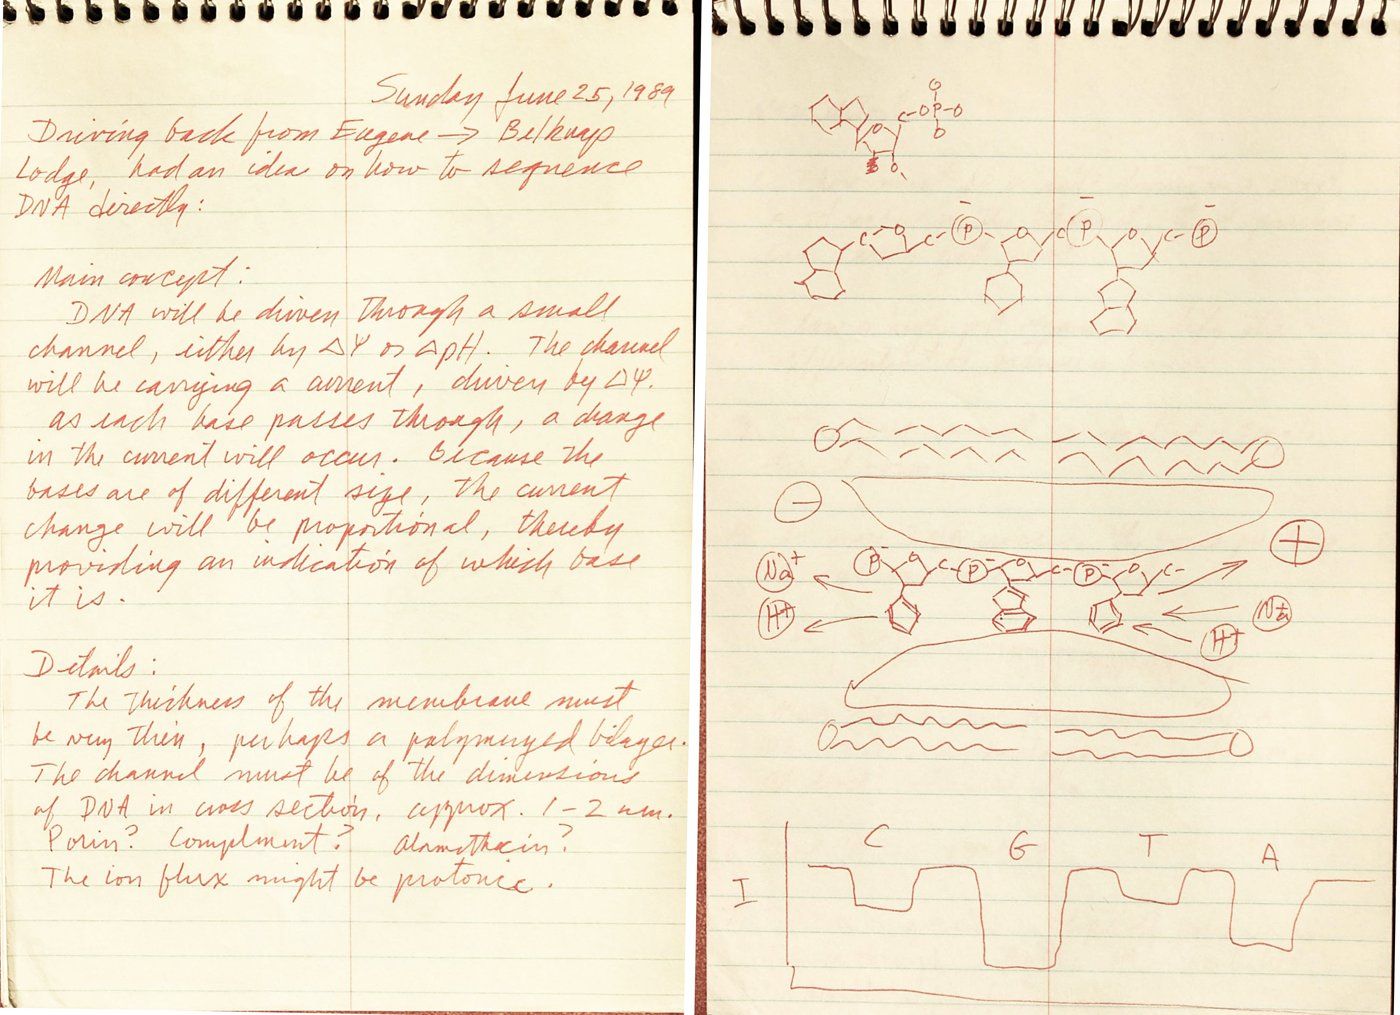 Sunday June 25, 1989
Driving back from Eugene → Belknap
Lodge, had an idea on how to sequence
DNA directly:
Main concept:
DNA will be driven through a small
channel, either by ΔΨ or ΔpH. The channel
will be carrying a current, driven by ΔΨ.
As each base passes through, a change
in the current will occur. Because the
bases are of different size, the current
change will be proportional, thereby
providing an indication of which base
it is.
Details:
The thickness of the membrane must
be very thin, perhaps a polymerized bilayer.
The channel must be of the dimensions
of DNA in cross section, approx. 1-2 nm.
Porin? Compliment? Alamethicin?
The ion flux might be protonic.
O
C-O-P-O
O O
O
C O C- P - O C P - O C- P -
− +
P - O C- P - O C- P - O C-
Na+
H+
Na+
H+
C G T A
I